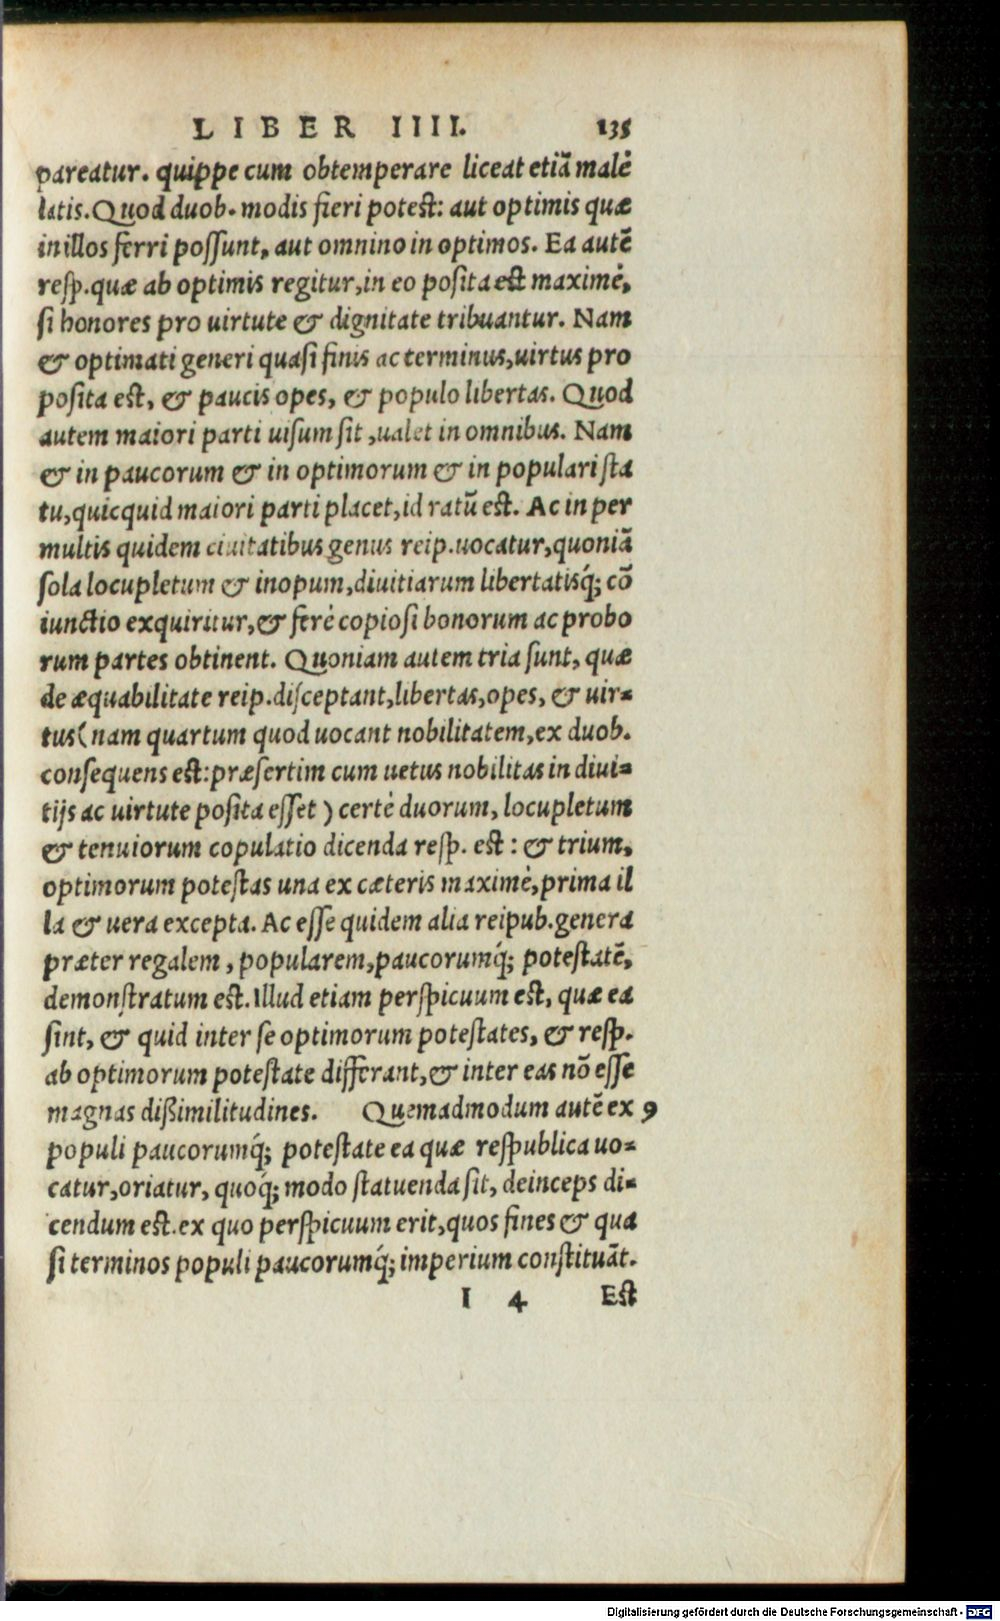 LIBER IIII. 135
pareatur. quippe cum obtemperare liceat etiā malè
latis. Quod duob. modis fieri potest: aut optimis quæ
in illos ferri possunt, aut omnino in optimos. Ea autē
resp. quæ ab optimis regitur, in eo posita est maximè,
si honores pro uirtute & dignitate tribuantur. Nam
& optimati generi quasi finis ac terminus, uirtus pro
posita est, & paucis opes, & populo libertas. Quod
autem maiori parti uisum sit, ualet in omnibus. Nam
& in paucorum & in optimorum & in populari sta
tu, quicquid maiori parti placet, id ratū est. Ac in per
multis quidem ciuitatibus genus reip. uocatur, quoniā
sola locupletum & inopum, diuitiarum libertatisq́; cō
iunctio exquiritur, & ferè copiosi bonorum ac probo
rum partes obtinent. Quoniam autem tria sunt, quæ
de æquabilitate reip. disceptant, libertas, opes, & uir-
tus (nam quartum quod uocant nobilitatem, ex duob.
consequens est: præsertim cum uetus nobilitas in diui-
tijs ac uirtute posita esset) certè duorum, locupletum
& tenuiorum copulatio dicenda resp. est: & trium,
optimorum potestas una ex cæteris maximè, prima il
la & uera excepta. Ac esse quidem alia reipub. genera
præter regalem, popularem, paucorumq́; potestatē,
demonstratum est. Illud etiam perspicuum est, quæ ea
sint, & quid inter se optimorum potestates, & resp.
ab optimorum potestate differant, & inter eas nō esse
magnas dißimilitudines. Quemadmodum autē ex 9
populi paucorumq́; potestate ea quæ respublica uo-
catur, oriatur, quoq́; modo statuenda sit, deinceps di-
cendum est. ex quo perspicuum erit, quos fines & qua
si terminos populi paucorumq́; imperium constituāt.
I 4 Est
Digitalisierung gefördert durch die Deutsche Forschungsgemeinschaft - DFG